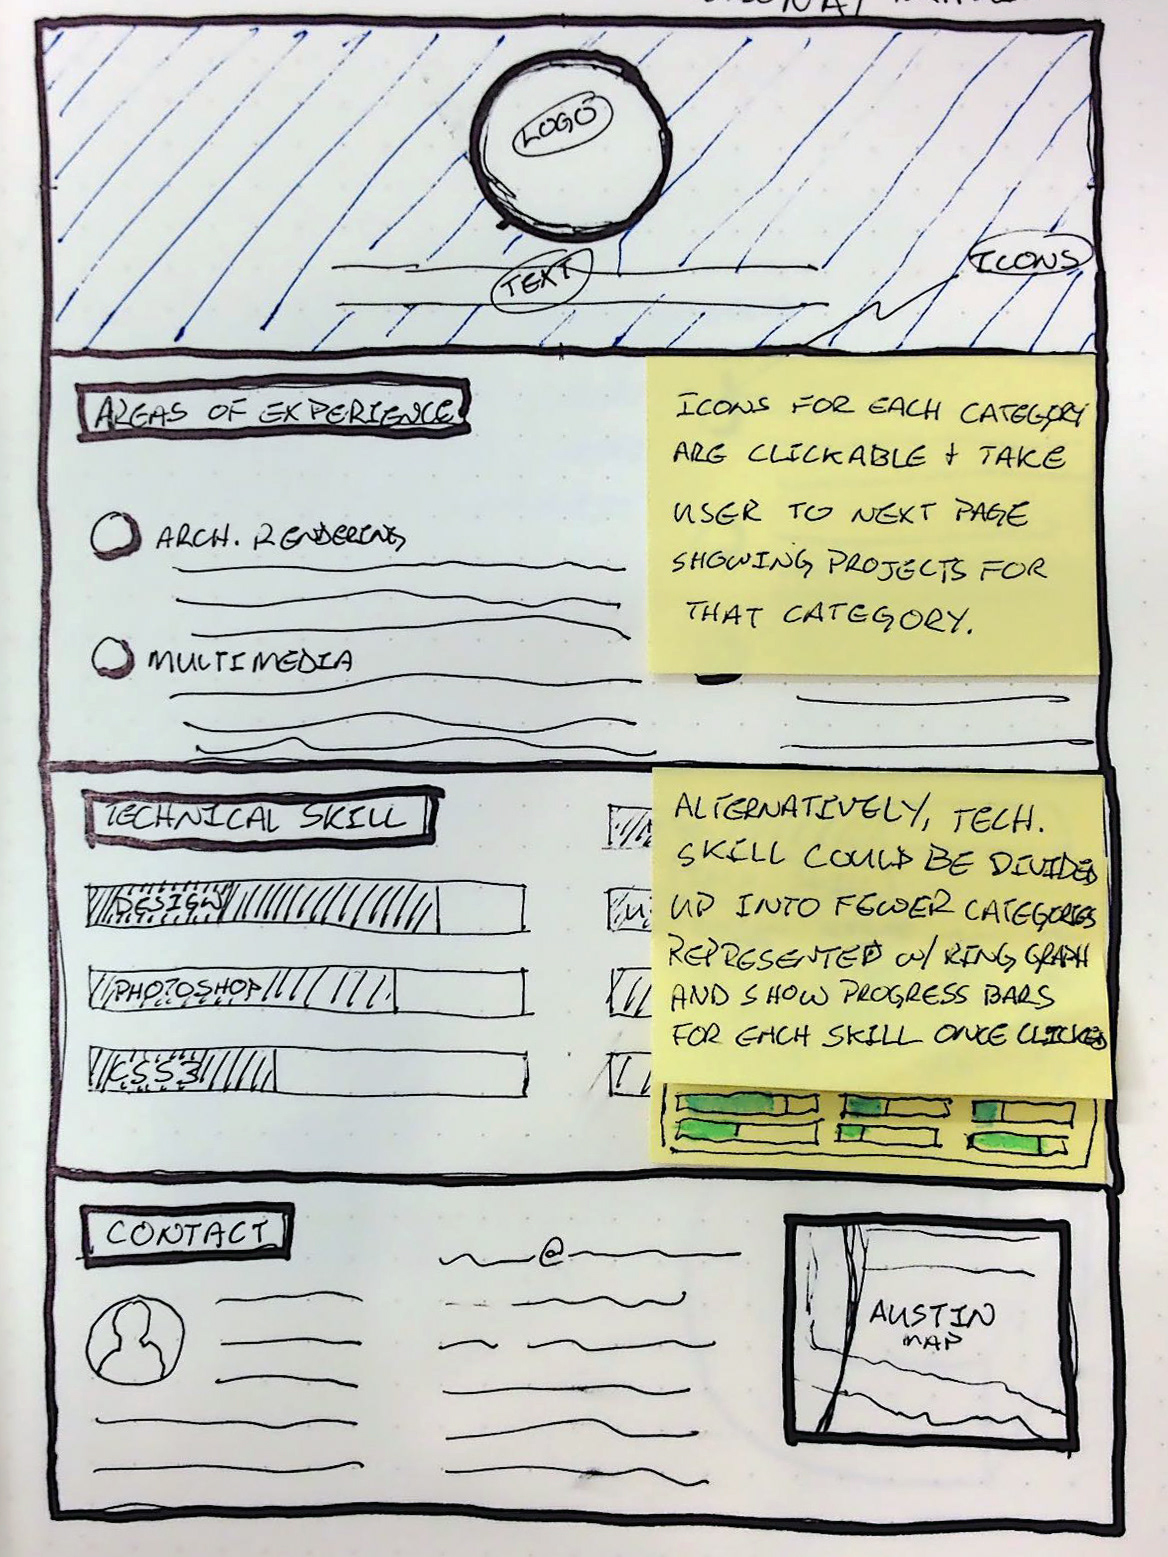 LOGO
TEXT
ICONS
AREAS OF EXPERIENCE
ARCH. RENDERING
MULTIMEDIA
ICONS FOR EACH CATEGORY
ARE CLICKABLE + TAKE
USER TO NEXT PAGE
SHOWING PROJECTS FOR
THAT CATEGORY.
TECHNICAL SKILL
DESIGN
PHOTOSHOP
CSS3
ALTERNATIVELY, TECH.
SKILL COULD BE DIVIDED
UP INTO FEWER CATEGORIES
REPRESENTED W/ RING GRAPH
AND SHOW PROGRESS BARS
FOR EACH SKILL ONCE CLICKED
CONTACT
@
AUSTIN
MAP